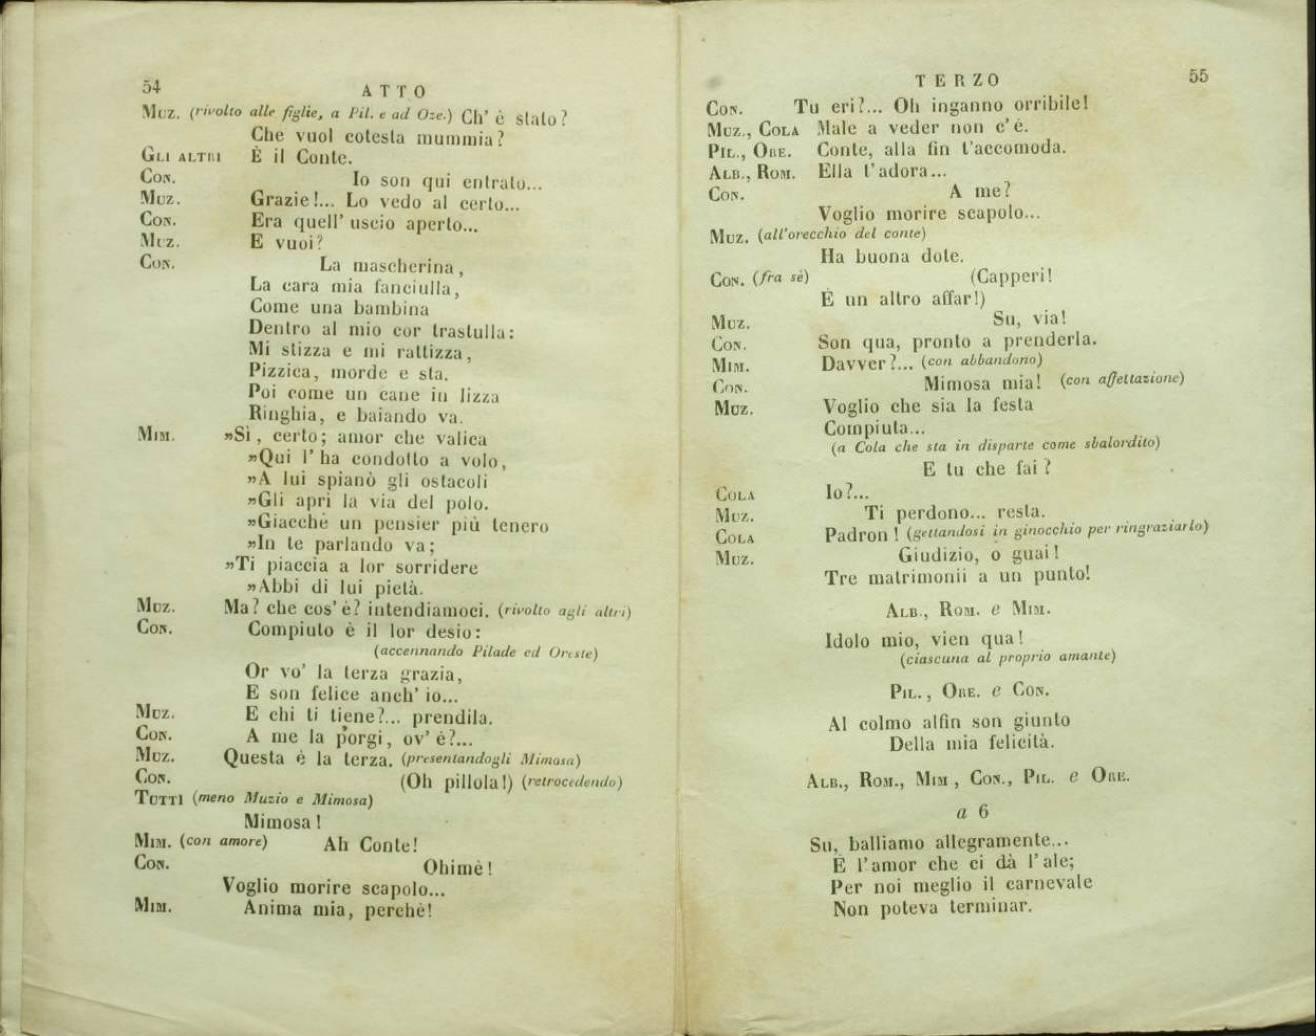 54
ATTO
MUZ. (rivolto alle figlie, a Pil. e ad Oze.) Ch' è stato?
Che vuol cotesta mummia?
GLI ALTRI È il Conte.
CON. Io son qui entrato...
MUZ. Grazie!... Lo vedo al certo...
CON. Era quell' uscio aperto...
MUZ. E vuoi?
CON. La mascherina,
La cara mia fanciulla,
Come una bambina
Dentro al mio cor trastulla:
Mi stizza e mi rattizza,
Pizzica, morde e sta.
Poi come un cane in lizza
Ringhia, e baiando va.
MIM. »Sì, certo; amor che valica
»Qui l' ha condotto a volo,
»A lui spianò gli ostacoli
»Gli aprì la via del polo.
»Giacchè un pensier più tenero
»In te parlando va;
»Ti piaccia a lor sorridere
»Abbi di lui pietà.
MUZ. Ma? che cos' è? intendiamoci. (rivolto agli altri)
CON. Compiuto è il lor desio:
(accennando Pilade ed Oreste)
Or vo' la terza grazia,
E son felice anch' io...
MUZ. E chi ti tiene?... prendila.
CON. A me la porgi, ov' è?...
MUZ. Questa è la terza. (presentandogli Mimosa)
CON. (Oh pillola!) (retrocedendo)
TUTTI (meno Muzio e Mimosa)
Mimosa!
MIM. (con amore) Ah Conte!
CON. Ohimè!
Voglio morire scapolo...
MIM. Anima mia, perchè!
TERZO
55
CON. Tu eri?... Oh inganno orribile!
MUZ., COLA Male a veder non c' è.
PIL., ORE. Conte, alla fin t'accomoda.
ALB., ROM. Ella t'adora...
CON. A me?
Voglio morire scapolo...
MUZ. (all'orecchio del conte)
Ha buona dote.
CON. (fra sè) (Capperi!
È un altro affar!)
MUZ. Su, via!
CON. Son qua, pronto a prenderla.
MIM. Davver?... (con abbandono)
CON. Mimosa mia! (con affettazione)
MUZ. Voglio che sia la festa
Compiuta...
(a Cola che sta in disparte come sbalordito)
E tu che fai?
COLA Io?...
MUZ. Ti perdono... resta.
COLA Padron! (gettandosi in ginocchio per ringraziarlo)
MUZ. Giudizio, o guai!
Tre matrimonii a un punto!
ALB., ROM. e MIM.
Idolo mio, vien qua!
(ciascuna al proprio amante)
PIL., ORE. e CON.
Al colmo alfin son giunto
Della mia felicità.
ALB., ROM., MIM, CON., PIL. e ORE.
a 6
Su, balliamo allegramente...
È l'amor che ci dà l'ale;
Per noi meglio il carnevale
Non poteva terminar.